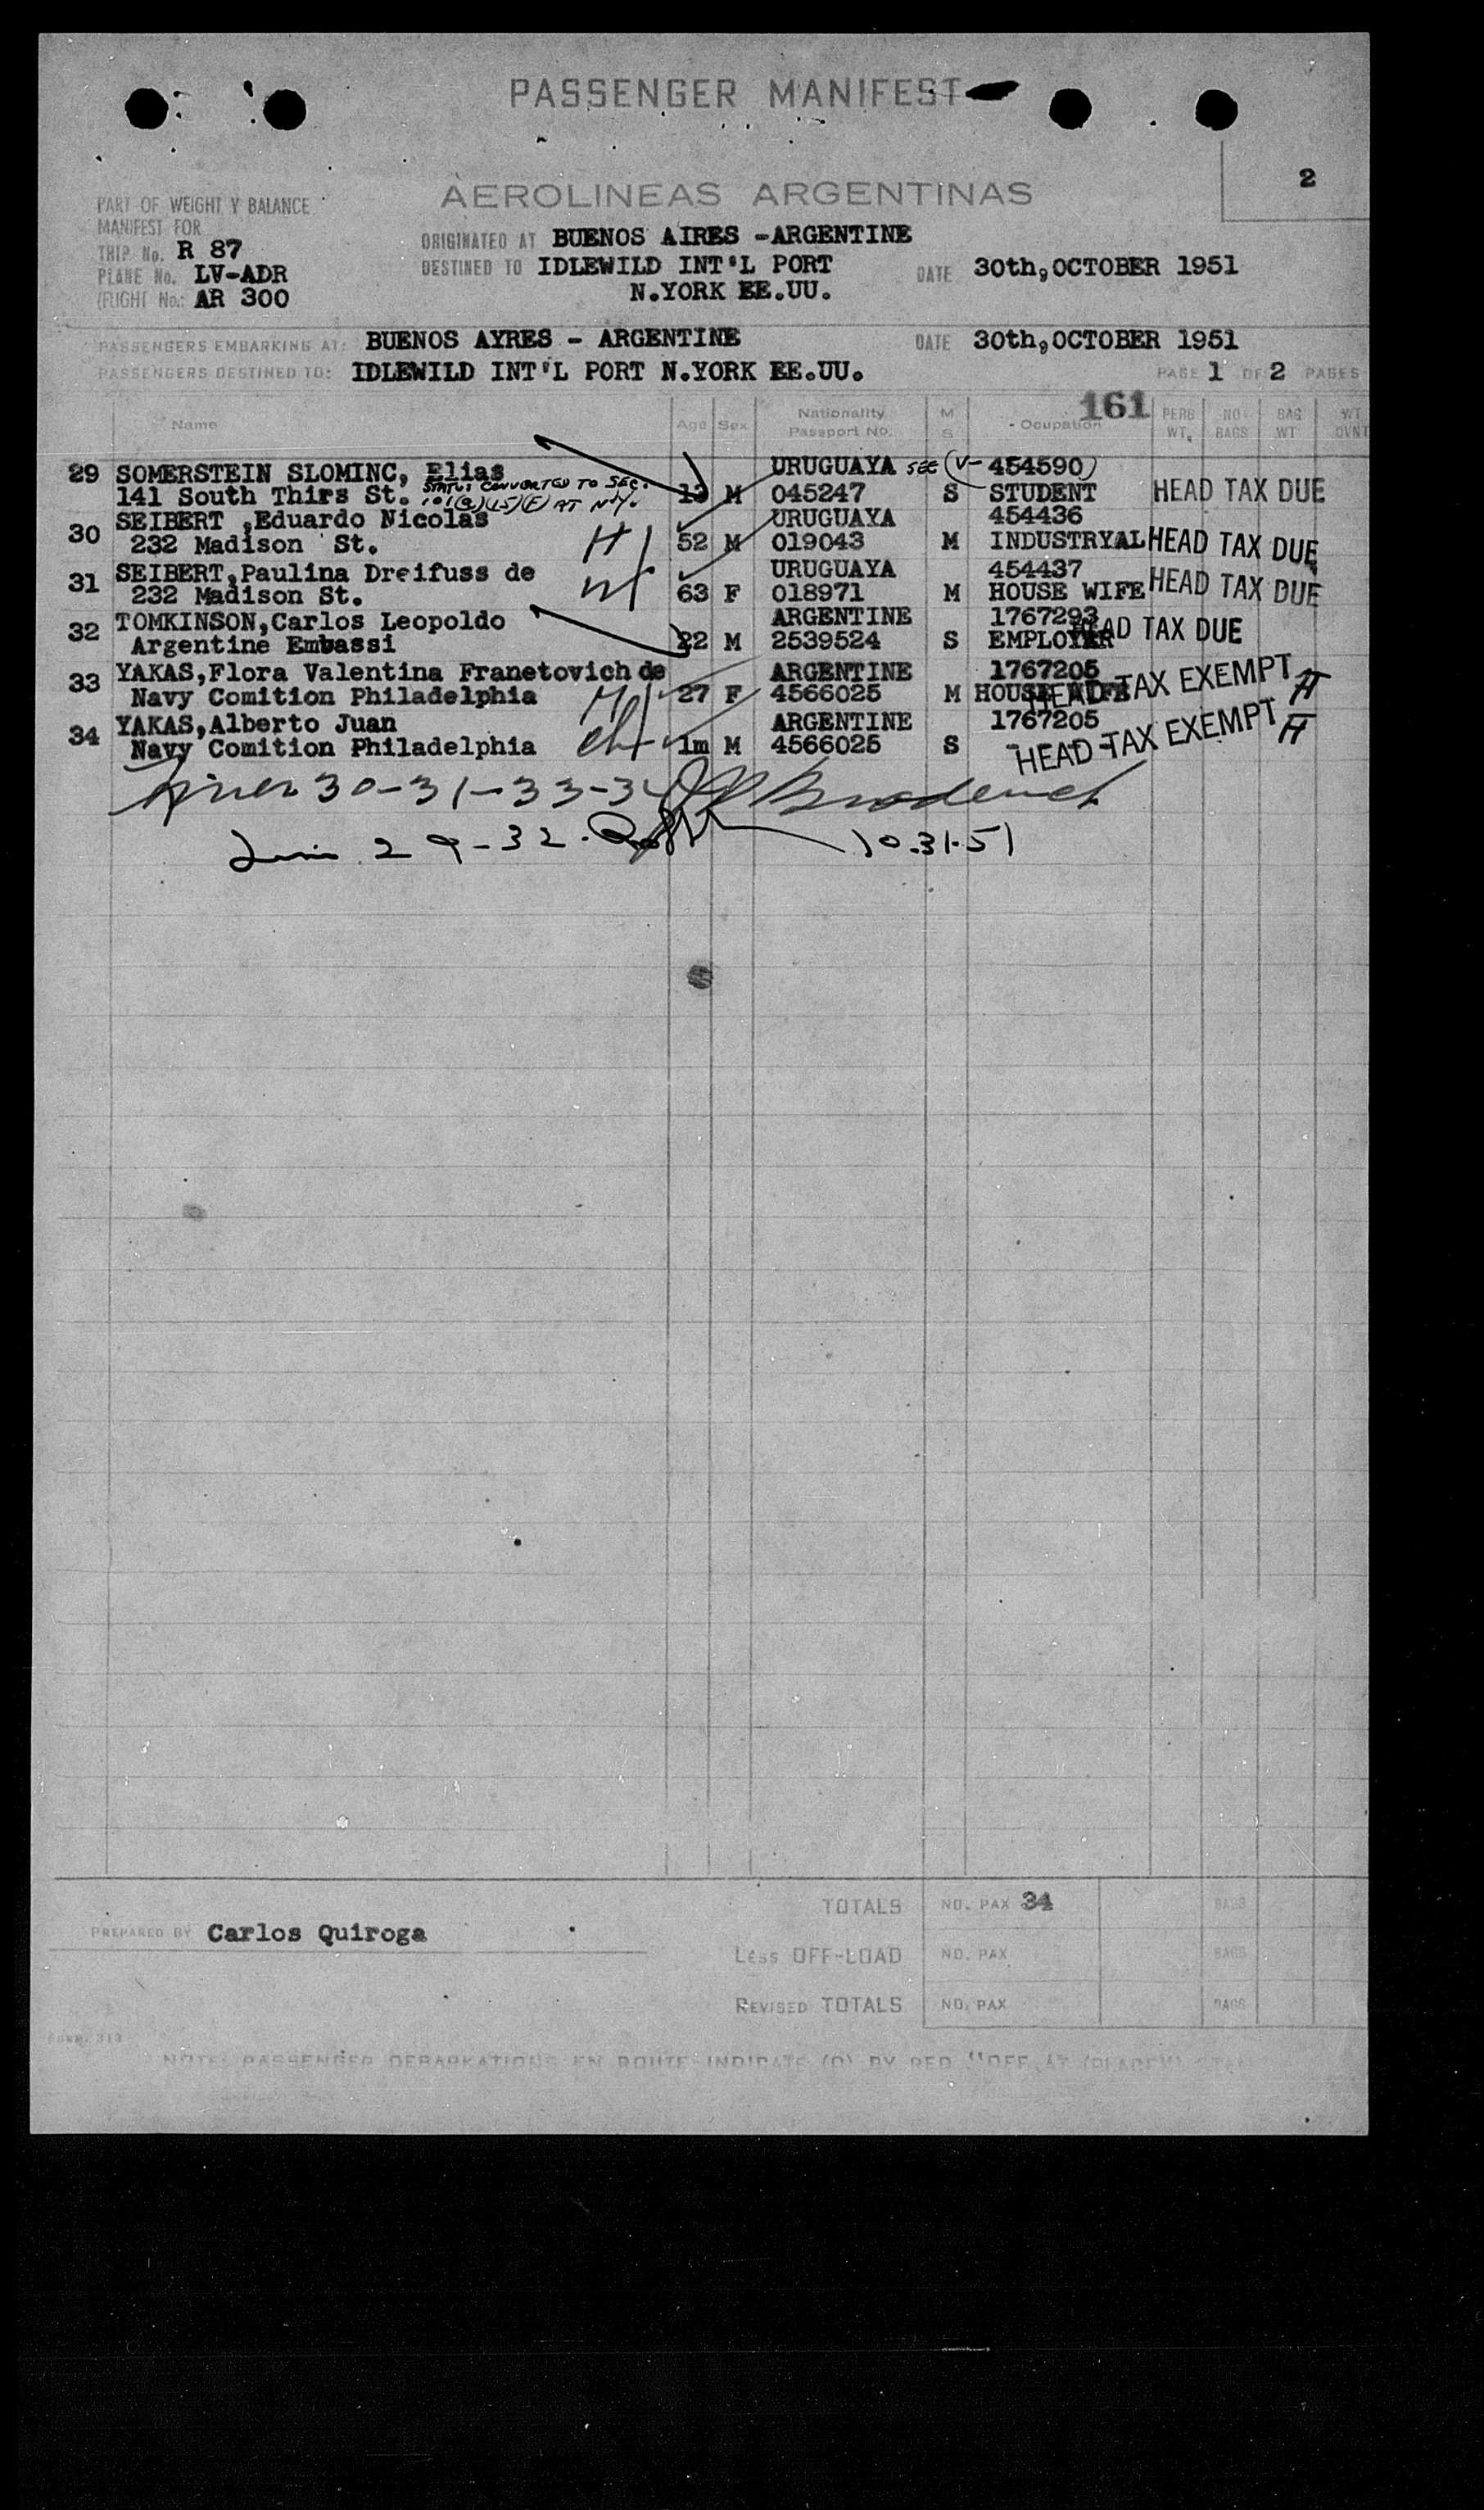 PASSENGER MANIFEST
2
AEROLINEAS ARGENTINAS
PART OF WEIGHT Y BALANCE
MANIFEST FOR
TRIP No. R 87
PLANE No. LV-ADR
FLIGHT No.: AR 300
ORIGINATED AT BUENOS AIRES -ARGENTINE
DESTINED TO IDLEWILD INT'L PORT DATE 30th,OCTOBER 1951
N.YORK EE.UU.
PASSENGERS EMBARKING AT: BUENOS AYRES - ARGENTINE DATE 30th,OCTOBER 1951
PASSENGERS DESTINED TO: IDLEWILD INT'L PORT N.YORK EE.UU. PAGE 1 OF 2 PAGES
161
Name Age Sex Nationality Passport No. M S Ocupation PERS WT. NO BAGS BAG WT WT OVNT
29 SOMERSTEIN SLOMINC, Elias URUGUAYA SEE (V- 454590)
141 South Thirs St. STATUS CONVERTED TO SEC. 101(a)(15)(F) AT NY. 13 M 045247 S STUDENT HEAD TAX DUE
30 SEIBERT ,Eduardo Nicolas URUGUAYA 454436
232 Madison St. H 52 M 019043 M INDUSTRYAL HEAD TAX DUE
31 SEIBERT,Paulina Dreifuss de URUGUAYA 454437
232 Madison St. W 63 F 018971 M HOUSE WIFE HEAD TAX DUE
32 TOMKINSON,Carlos Leopoldo ARGENTINE 1767293
Argentine Embassi 22 M 2539524 S EMPLOYER HEAD TAX DUE
33 YAKAS,Flora Valentina Franetovich de ARGENTINE 1767205
Navy Comition Philadelphia M 27 F 4566025 M HOUSE WIFE HEAD TAX EXEMPT H
34 YAKAS,Alberto Juan ARGENTINE 1767205
Navy Comition Philadelphia ch 1m M 4566025 S - - HEAD TAX EXEMPT H
30-31-33-34
29-32. 10.31.51
TOTALS NO. PAX 34 BAGS
PREPARED BY Carlos Quiroga
Less OFF-LOAD NO. PAX BAGS
REVISED TOTALS NO. PAX BAGS
FORM. 313
NOTE: PASSENGER DEBARKATIONS EN ROUTE INDICATE (O) BY RED "OFF AT (PLACE)"